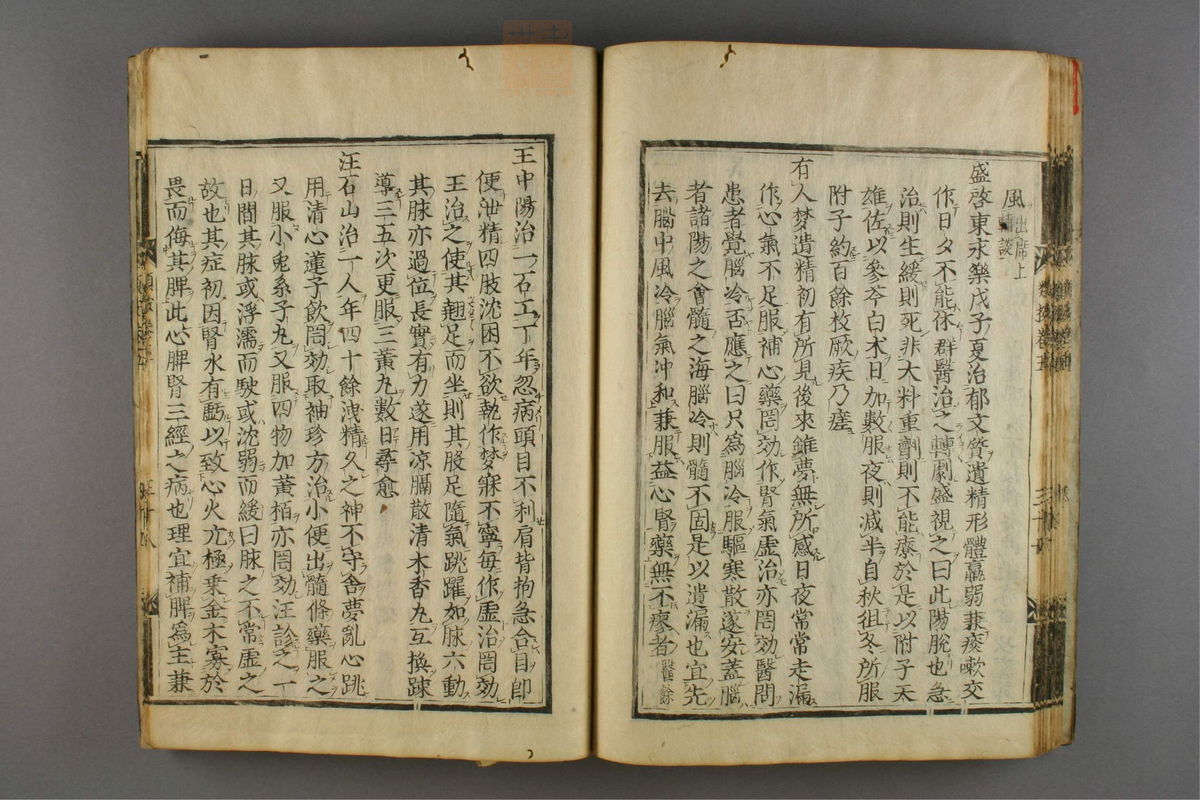 風出席上
輔談
盛啓東永樂戊子夏治郁文質遺精形體羸弱兼痰嗽交
作日夕不能休群醫治之轉劇盛視之曰此陽脫也急
治則生緩則死非大料重劑則不能療於是以附子天
雄佐以參苓白朮日加數服夜則減半自秋徂冬所服
附子約百餘枚厥疾乃瘥
有人夢遺精初有所見後來雖夢無所感日夜常常走漏
作心氣不足服補心藥罔効作腎氣虛治亦罔効醫問
患者覺腦冷否應之曰只爲腦冷服驅寒散遂安蓋腦
者諸陽之會髓之海腦冷則髓不固是以遺漏也宜先
去腦中風冷腦氣冲和兼服益心腎藥無不瘳者醫餘
王中陽治一石工丁年忽病頭目不利肩背拘急合目卽
便泄精四肢沈困不欲執作夢寐不寧每作虛治罔効
王治之使其翹足而坐則其股足隨氣跳躍如脉六動
其脉亦過位長實有力遂用凉膈散清木香丸互換踈
導三五次更服三黃丸數日尋愈
汪石山治一人年四十餘洩精久之神不守舍夢亂心跳
用清心蓮子飮罔効取袖珍方治小便出髓條藥服之
又服小兎系子丸又服四物加黃栢亦罔効汪診之一
日間其脉或浮濡而駛或沈弱而緩曰脉之不常虛之
故也其症初因腎水有虧以致心火亢極乘金木寡於
畏而侮其脾此心脾腎三經之病也理宜補脾爲主兼